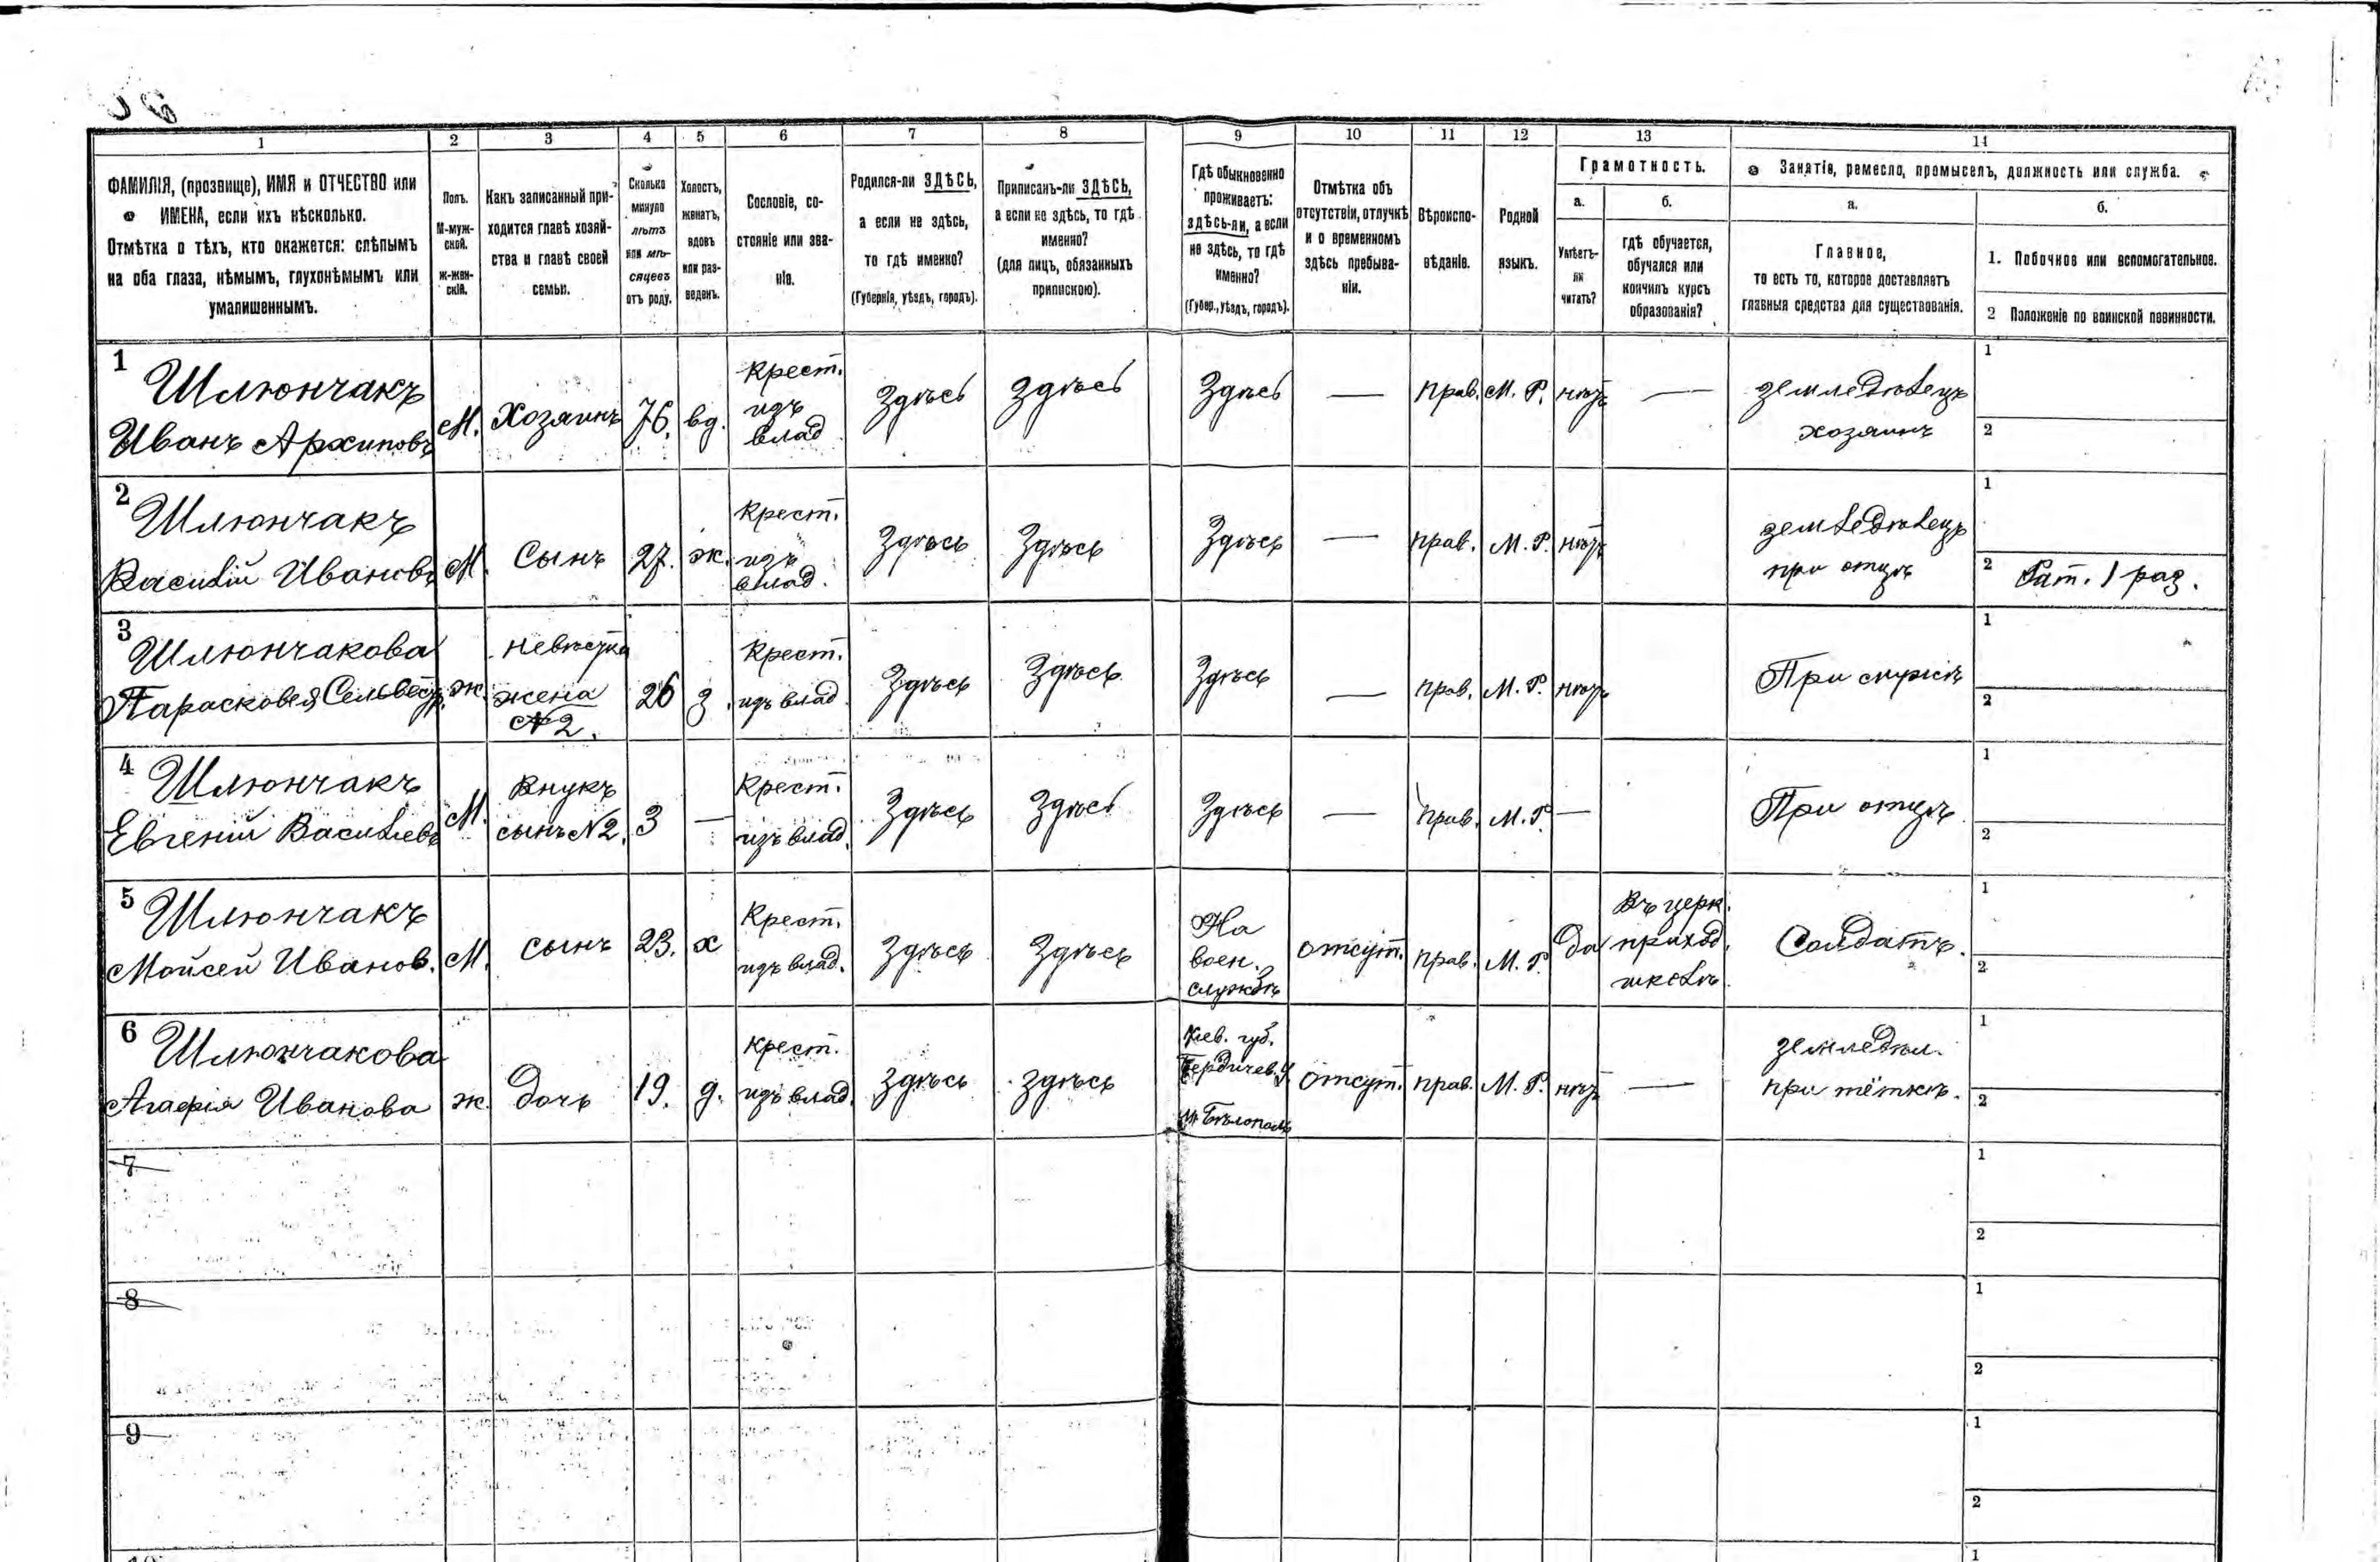 1 2 3 4 5 6 7 8 9 10 11 12 13 14
ФАМИЛІЯ, (прозвище), ИМЯ и ОТЧЕСТВО или
ИМЕНА, если ихъ нѣсколько.
Отмѣтка о тѣхъ, кто окажется: слѣпымъ
на оба глаза, нѣмымъ, глухонѣмымъ или
умалишеннымъ.
Полъ.
М-муж-
ской.
ж-жен-
скій.
Какъ записанный при-
ходится главѣ хозяй-
ства и главѣ своей
семьи.
Сколько
минуло
лѣтъ
или мѣ-
сяцевъ
отъ роду.
Холостъ,
женатъ,
вдовъ
или раз-
веденъ.
Сословіе, со-
стояніе или зва-
ніе.
Родился-ли ЗДѢСЬ,
а если не здѣсь,
то гдѣ именно?
(Губернія, уѣздъ, городъ).
Приписанъ-ли ЗДѢСЬ,
а если не здѣсь, то гдѣ
именно?
(для лицъ, обязанныхъ
припискою).
Гдѣ обыкновенно
проживаетъ:
здѣсь-ли, а если
не здѣсь, то гдѣ
именно?
(Губер., уѣздъ, городъ).
Отмѣтка объ
отсутствіи, отлучкѣ
и о временномъ
здѣсь пребыва-
ніи.
Вѣроиспо-
вѣданіе.
Родной
языкъ.
Грамотность.
а.
Умѣетъ-
ли
читать?
б.
гдѣ обучается,
обучался или
кончилъ курсъ
образованія?
Занятіе, ремесло, промыселъ, должность или служба.
а.
Главное,
то есть то, которое доставляетъ
главныя средства для существованія.
б.
1. Побочное или вспомогательное.
2 Положеніе по воинской повинности.
1
Шлюнчакъ
Иванъ Архиповъ
М.
Хозяинъ
76.
вд.
Крест.
изъ
влад
Здѣсь
Здѣсь
Здѣсь
—
прав.
М. Р.
нѣтъ
—
земледѣлецъ
хозяинъ
1
2
2
Шлюнчакъ
Василій Ивановъ
М.
Сынъ
27.
ж.
Крест.
изъ
влад.
Здѣсь
Здѣсь
Здѣсь
—
прав.
М. Р.
нѣтъ
земледѣлецъ
при отцѣ
1
2
Рат. 1 раз.
3
Шлюнчакова
Парасковея Сельвестр.
ж.
невѣстка
жена
№2.
26
з.
Крест.
изъ влад.
Здѣсь
Здѣсь
Здѣсь
—
прав.
М. Р.
нѣтъ
При мужѣ
1
2
4
Шлюнчакъ
Евгеній Васильевъ
М.
Внукъ
сынъ №2.
3
—
Крест.
изъ влад.
Здѣсь
Здѣсь
Здѣсь
—
прав.
М. Р.
—
При отцѣ
1
2
5
Шлюнчакъ
Мойсей Иванов.
М.
сынъ
23.
х
Крест.
изъ влад.
Здѣсь
Здѣсь
На
воен.
службѣ
отсут.
прав.
М. Р.
да
Въ церк.
приход.
школѣ.
Солдатъ.
1
2
6
Шлюнчакова
Агафія Иванова
ж.
Дочь
19.
д.
крест.
изъ влад.
Здѣсь
Здѣсь
Кіев. губ.
Бердичев. у.
м. Бѣлополь
отсут.
прав.
М. Р.
нѣтъ
—
земледѣл.
при тёткѣ.
1
2
7
1
2
8
1
2
9
1
2
1